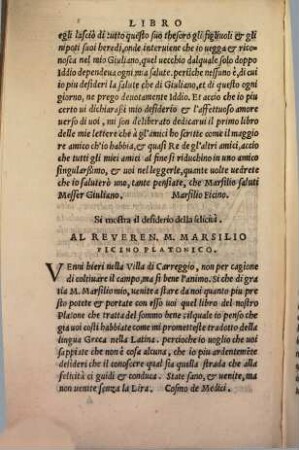 LIBRO
egli lasciò di tutto questo suo thesoro gli figliuoli & gli
nipoti suoi heredi, onde interviene che io vegga & rico-
nosca nel mio Giuliano, quel vecchio dalquale solo doppo
Iddio dependeua ogni mia salute. perciche nessuno è, di cui
io piu desideri la salute che di Giuliano, et di questo ogni
giorno, ne prego deuotamente Iddio. Et accio che io piu
certo ui dichiarassi mio desiderio & l'affettuoso amore
uerso di uoi, mi son deliberato dedicarui il primo libro
delle mie lettere chè à gl'amici ho scritte come il maggio
re amico ch'io habbia, & quasi Re de gl'altri amici, accio
che tutti gli mici amici al fine si riduchino in uno amico
singularissimo, & uoi nel leggerle, quante uolte uedrete
che io saluterò uno, tante pensiate, che Marsilio saluti
Messer Giuliano. Marsilio Ficino.
Si mostra il desiderio della felicità.
AL REVEREN. M. MARSILIO
FICINO PLATONICO.
VEnni hieri nella Villa di Carreggio, non per cagione
di coltiuare il campo, ma si bene l'animo. Si che di gra
tia M. Marsilio mio, uenite a stare da noi quanto piu pre
sto potete & portate con esso uoi quel libro del nostro
Platone che tratta del sommo bene: ilquale io penso che
gia uoi costi habbiate come mi prometteste tradotto della
lingua Greca nella Latina. percioche io uoglio che uoi
sappiate che non è cosa alcuna, che io piu ardentemẽte
desideri che il conoscer qual sia quella strada che alla
felicità ci guidi & conduca. State sano, & uenite, ma
non uenite senza la Lira. Cosmo de Medici.